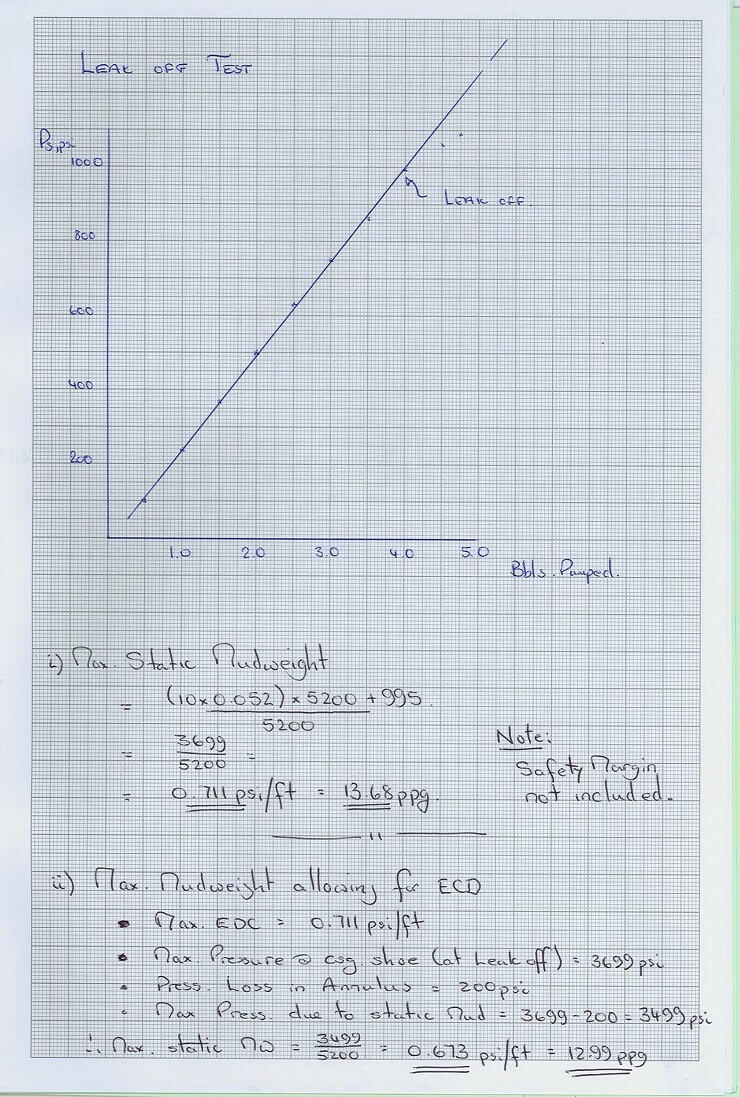 LEAK OFF TEST
Ps, psi
1000
LEAK OFF.
800
600
400
200
1.0 2.0 3.0 4.0 5.0
Bbls. Pumped.
i) Max. Static Mudweight
= (10 x 0.052) x 5200 + 995.
5200
= 3699 =
5200
= 0.711 psi/ft = 13.68 ppg.
Note:
Safety Margin
not included.
ii) Max. Mudweight allowing for ECD
• Max. EDC = 0.711 psi/ft
• Max. Pressure @ csg. shoe (at Leak off) = 3699 psi
• Press. Loss in Annulus = 200 psi
• Max Press. due to static Mud = 3699 - 200 = 3499 psi
∴ Max. static MW = 3499 = 0.673 psi/ft = 12.99 ppg
5200